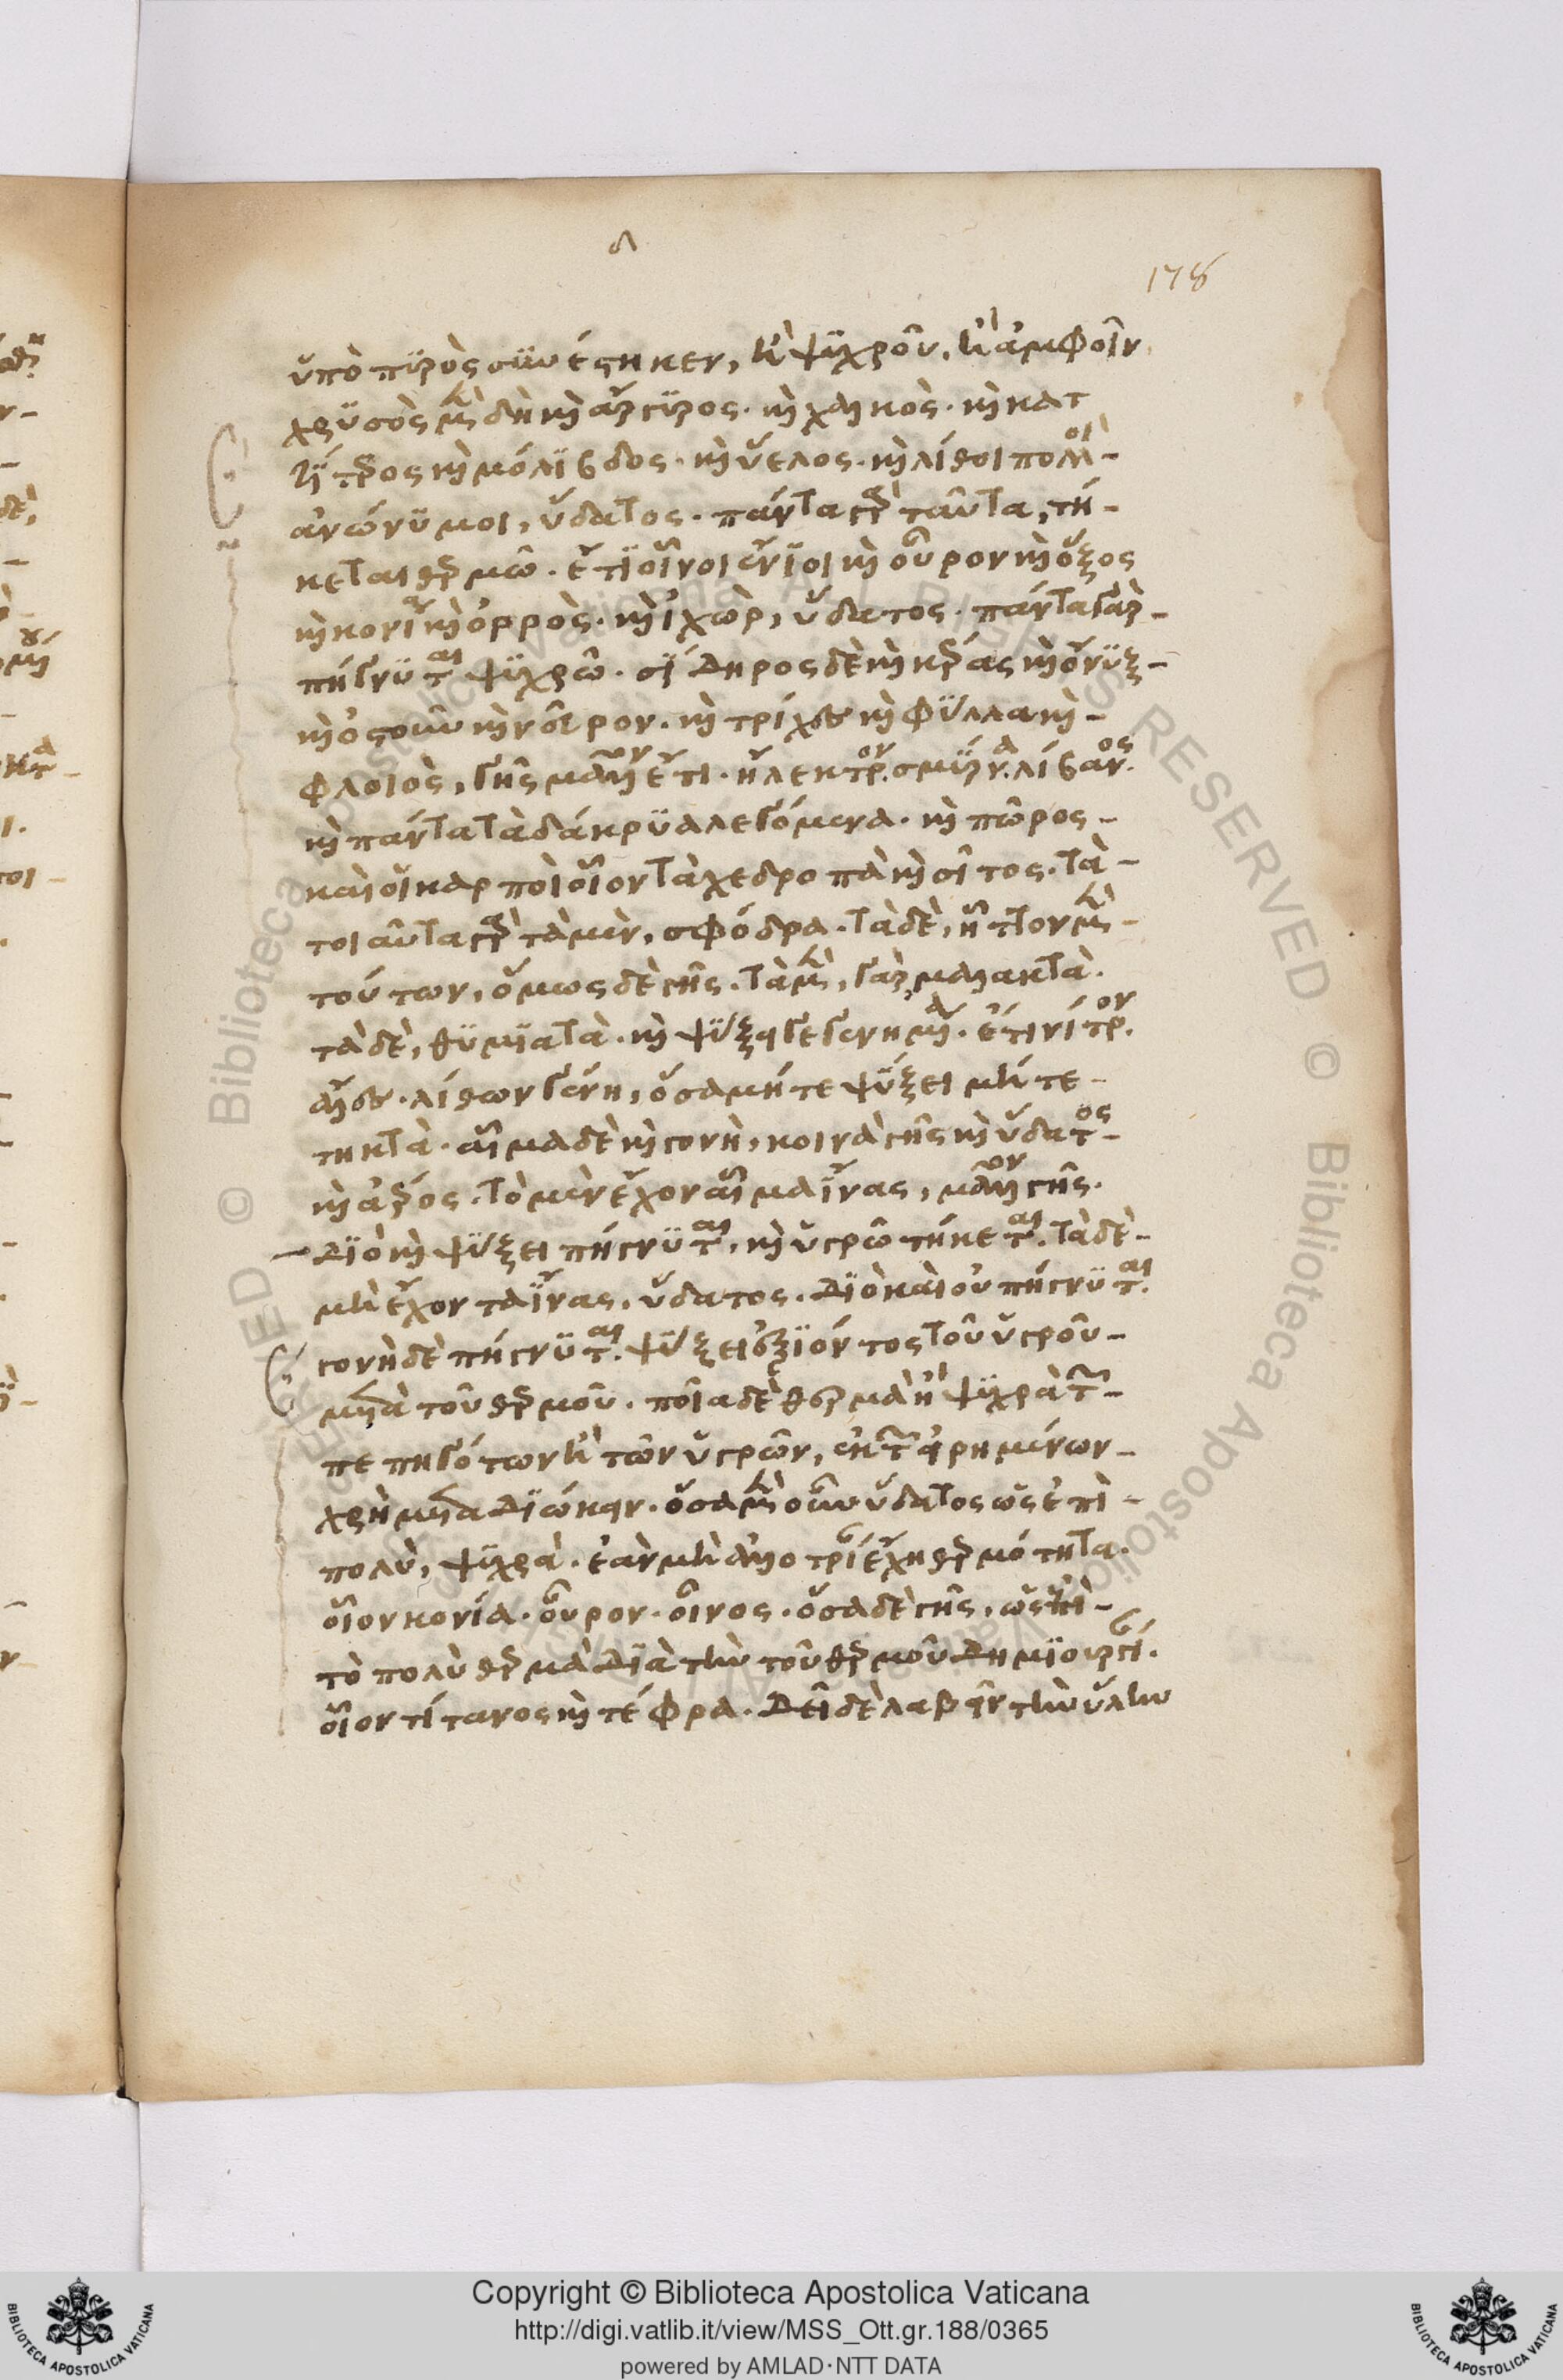 δ
178
ὑπὸ πυρὸς συνέστηκεν, ἢ ψυχροῦ, ἢ ἀμφοῖν.
χρυσὸς μὲν δὴ καὶ ἄργυρος· καὶ χαλκὸς· καὶ κατ
τίτερος καὶ μόλιβδος· καὶ ὕελος· καὶ λίθοι πολλοὶ
ἀνώνυμοι, ὕδατος· πάντα γὰρ ταῦτα, τή-
κεται θερμῶ· ἔτι οἶνοι ἔνιοι καὶ οὖρον καὶ ὄξος
καὶ κονία καὶ ὀρρὸς· καὶ ἰχὼρ, ὕδατος· πάντα γὰρ
πήγνυται ψυχρῶ· σίδηρος δὲ καὶ κέρας καὶ ὄνυξ
καὶ ὀστοῦν καὶ νεῦρον· καὶ τρίχες καὶ φύλλα καὶ
φλοιὸς, γῆς μᾶλλον ἔτι· ἤλεκτρον· σμύρνα· λίβανος·
καὶ πάντα τὰ δάκρυα λεγόμενα· καὶ πῶρος
καὶ οἱ καρποὶ οἷον τὰ χεδροπὰ καὶ σῖτος· τὰ
τοιαῦτα γὰρ τὰ μὲν, σφόδρα· τὰ δὲ, ἧττον μὲν
τούτων, ὅμως δὲ γῆς· τὰ μὲν, γὰρ μαλακτὰ·
τὰ δὲ, θυμιατὰ· καὶ ψύξει γεγενημένα· ἔτι νίτρον·
ἅλες· λίθων γένη, ὅσα μήτε ψύξει μήτε
τηκτὰ· αἷμα δὲ καὶ γονὴ, κοινὰ γῆς καὶ ὕδατος
καὶ ἀέρος· τὸ μὲν ἔχον αἷμα ἶνας, μᾶλλον γῆς·
διὸ καὶ ψύξει πήγνυται, καὶ ὑγρῶ τήκεται· τὰ δὲ
μὴ ἔχοντα ἶνας, ὕδατος· διὸ καὶ οὐ πήγνυται·
γονὴ δὲ πήγνυται· ψύξει ἐξιόντος τοῦ ὑγροῦ
μετὰ τοῦ θερμοῦ· ποῖα δὲ θερμὰ ἢ ψυχρὰ τῶν
πεπηγότων ἢ τῶν ὑγρῶν, ἐκ τῶν εἰρημένων
χρὴ μεταδιώκειν· ὅσα μὲν οὖν ὕδατος ὡς ἐπὶ
πολὺ, ψυχρὰ· ἐὰν μὴ ἀλλοτρίαν ἔχη θερμότητα·
οἷον κονία· οὖρον· οἶνος· ὅσα δὲ γῆς, ὡς ἐπὶ
τὸ πολὺ θερμὰ διὰ τὴν τοῦ θερμοῦ δημιουργίαν·
οἷον τίτανος καὶ τέφρα· δεῖ δὲ λαβεῖν τὴν ὕλην
© Biblioteca Apostolica Vaticana ALL RIGHTS RESERVED © Biblioteca Apostolica Vaticana ALL RIGHTS RESERVED
Copyright © Biblioteca Apostolica Vaticana
http://digi.vatlib.it/view/MSS_Ott.gr.188/0365
powered by AMLAD·NTT DATA
BIBLIOTECA APOSTOLICA VATICANA
BIBLIOTECA APOSTOLICA VATICANA